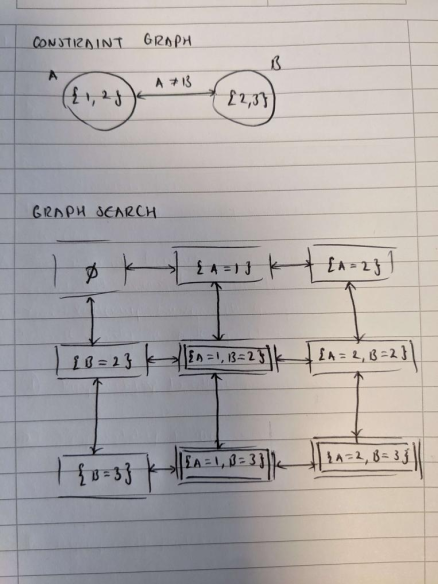 CONSTRAINT GRAPH
A
B
A ≠ B
{1, 2}
{2,3}
GRAPH SEARCH
∅
{A = 1}
{A = 2}
{B = 2}
{A = 1, B = 2}
{A = 2, B = 2}
{B = 3}
{A = 1, B = 3}
{A = 2, B = 3}